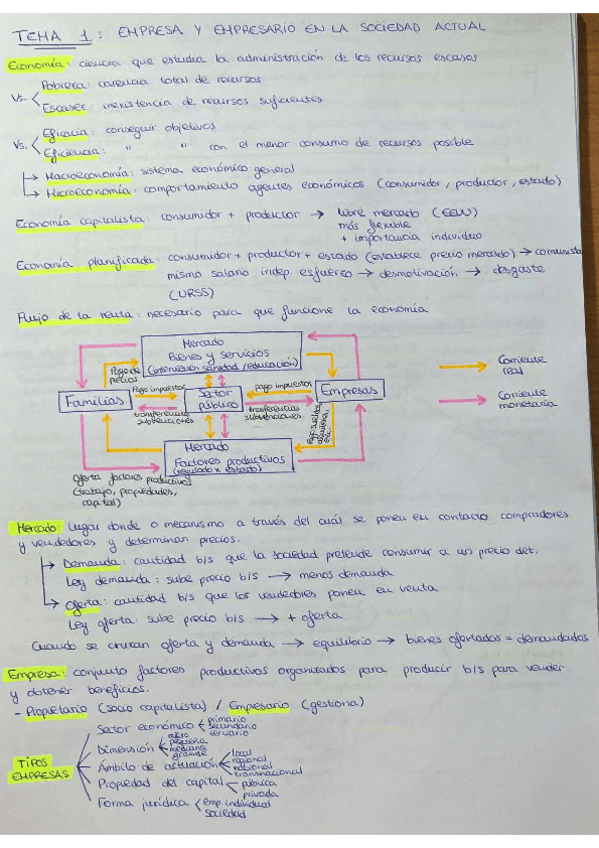 TEMA 1: EMPRESA Y EMPRESARIO EN LA SOCIEDAD ACTUAL
Economía: ciencia que estudia la administración de los recursos escasos
Vs. Pobreza: carencia total de recursos
Escasez: inexistencia de recursos suficientes
Vs. Eficacia: conseguir objetivos
Eficiencia: " " con el menor consumo de recursos posible
→ Macroeconomía: sistema económico general
→ Microeconomía: comportamiento agentes económicos (consumidor, productor, estado)
Economía capitalista: consumidor + productor → libre mercado (EEUU)
más flexible
+ importancia individuo
Economía planificada: consumidor + productor + estado (establece precio mercado) → comunista
mismo salario indep. esfuerzo → desmotivación → desgaste
(URSS)
Flujo de la renta: necesario para que funcione la economía
Mercado
Bienes y servicios
(intervienen sanidad/educación)
Pago de
precios
Pago impuestos
pago impuestos
Familias
Sector
público
Empresas
transferencias
subvenciones
trasferencias
subvenciones
Corriente
real
Corriente
monetaria
Mercado
Factores productivos
(regulado x estado)
Oferta factores productivos
(trabajo, propiedades,
capital)
Mercado: lugar donde o mecanismo a través del cuál se ponen en contacto compradores
y vendedores y determinan precios.
→ Demanda: cantidad b/s que la sociedad pretende consumir a un precio det.
Ley demanda: sube precio b/s → menos demanda
→ Oferta: cantidad b/s que los vendedores ponen en venta
Ley oferta: sube precio b/s → + oferta
Cuando se cruzan oferta y demanda → equilibrio → bienes ofertados = demandados
Empresa: conjunto factores productivos organizados para producir b/s para vender
y obtener beneficios.
- Propietario (socio capitalista) / Empresario (gestiona)
TIPOS
EMPRESAS
Sector económico primario
secundario
terciario
Dimensión micro
pequeña
mediana
grande
Ámbito de actuación local
regional
nacional
transnacional
Propiedad del capital pública
privada
Forma jurídica emp. individual
sociedad